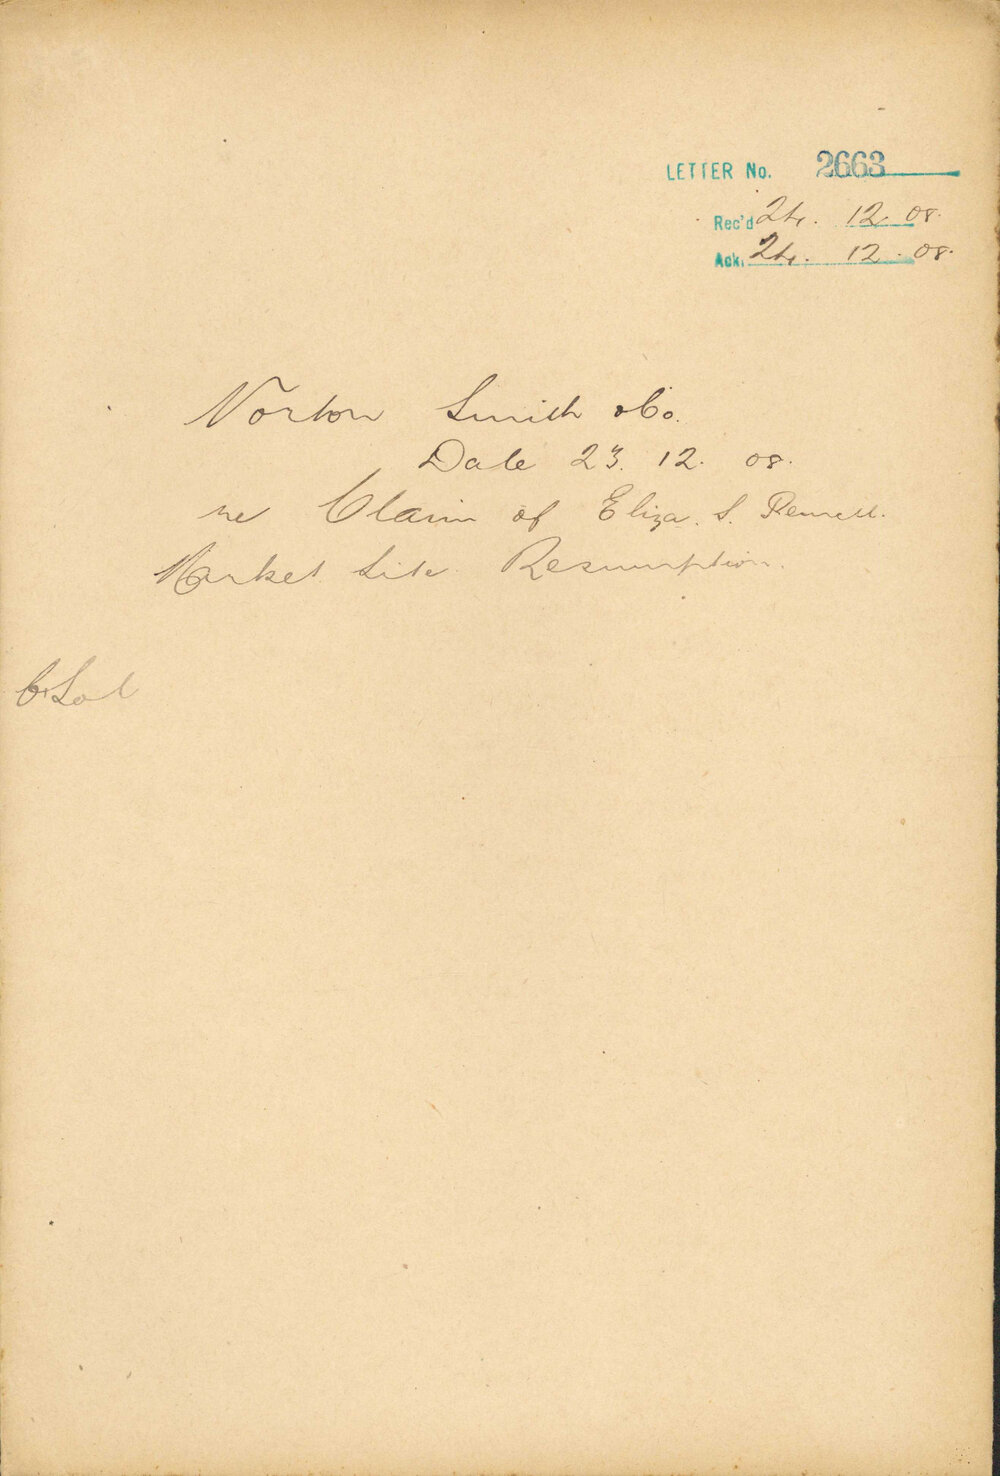 LETTER No. 2663
Rec'd 24. 12. 08.
Ack. 24. 12. 08.
Norton Smith & Co.
Date 23. 12. 08.
re Claim of Eliza. S.
Market Site Resumption.
C. Sol